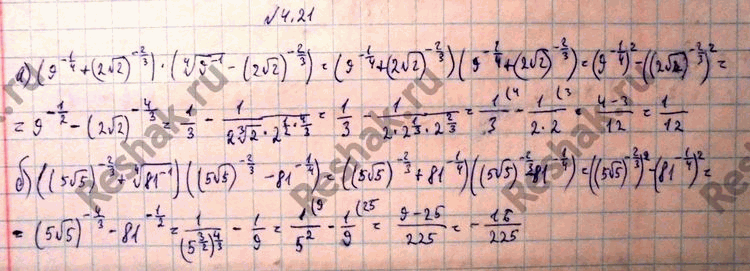 №4.21
а) (9^{-1/4} + (2√2)^{-2/3}) · (⁴√9^{-1} - (2√2)^{-2/3}) = (9^{-1/4} + (2√2)^{-2/3}) (9^{-1/4} + (2√2)^{-2/3}) = (9^{-1/4})² - ((2√2)^{-2/3})² =
= 9^{-1/2} - (2√2)^{-4/3} = 1/3 - 1/(2∛2 · 2^{1/2 · 4/3}) = 1/3 - 1/(2 · 2^{1/3} · 2^{2/3}) = 1/3 (4 - 1/(2·2) (3 = (4-3)/12 = 1/12
б) ((5√5)^{-2/3} + ⁴√81^{-1}) ((5√5)^{-2/3} - 81^{-1/4}) = ((5√5)^{-2/3} + 81^{-1/4}) ((5√5)^{-2/3} - 81^{-1/4}) = ((5√5)^{-2/3})² - (81^{-1/4})² =
= (5√5)^{-4/3} - 81^{-1/2} = 1/(5^{3/2})^{4/3} - 1/9 = 1/5² (9 - 1/9 (25 = (9-25)/225 = -16/225
Reshak.ru
Reshak.ru
Reshak.ru